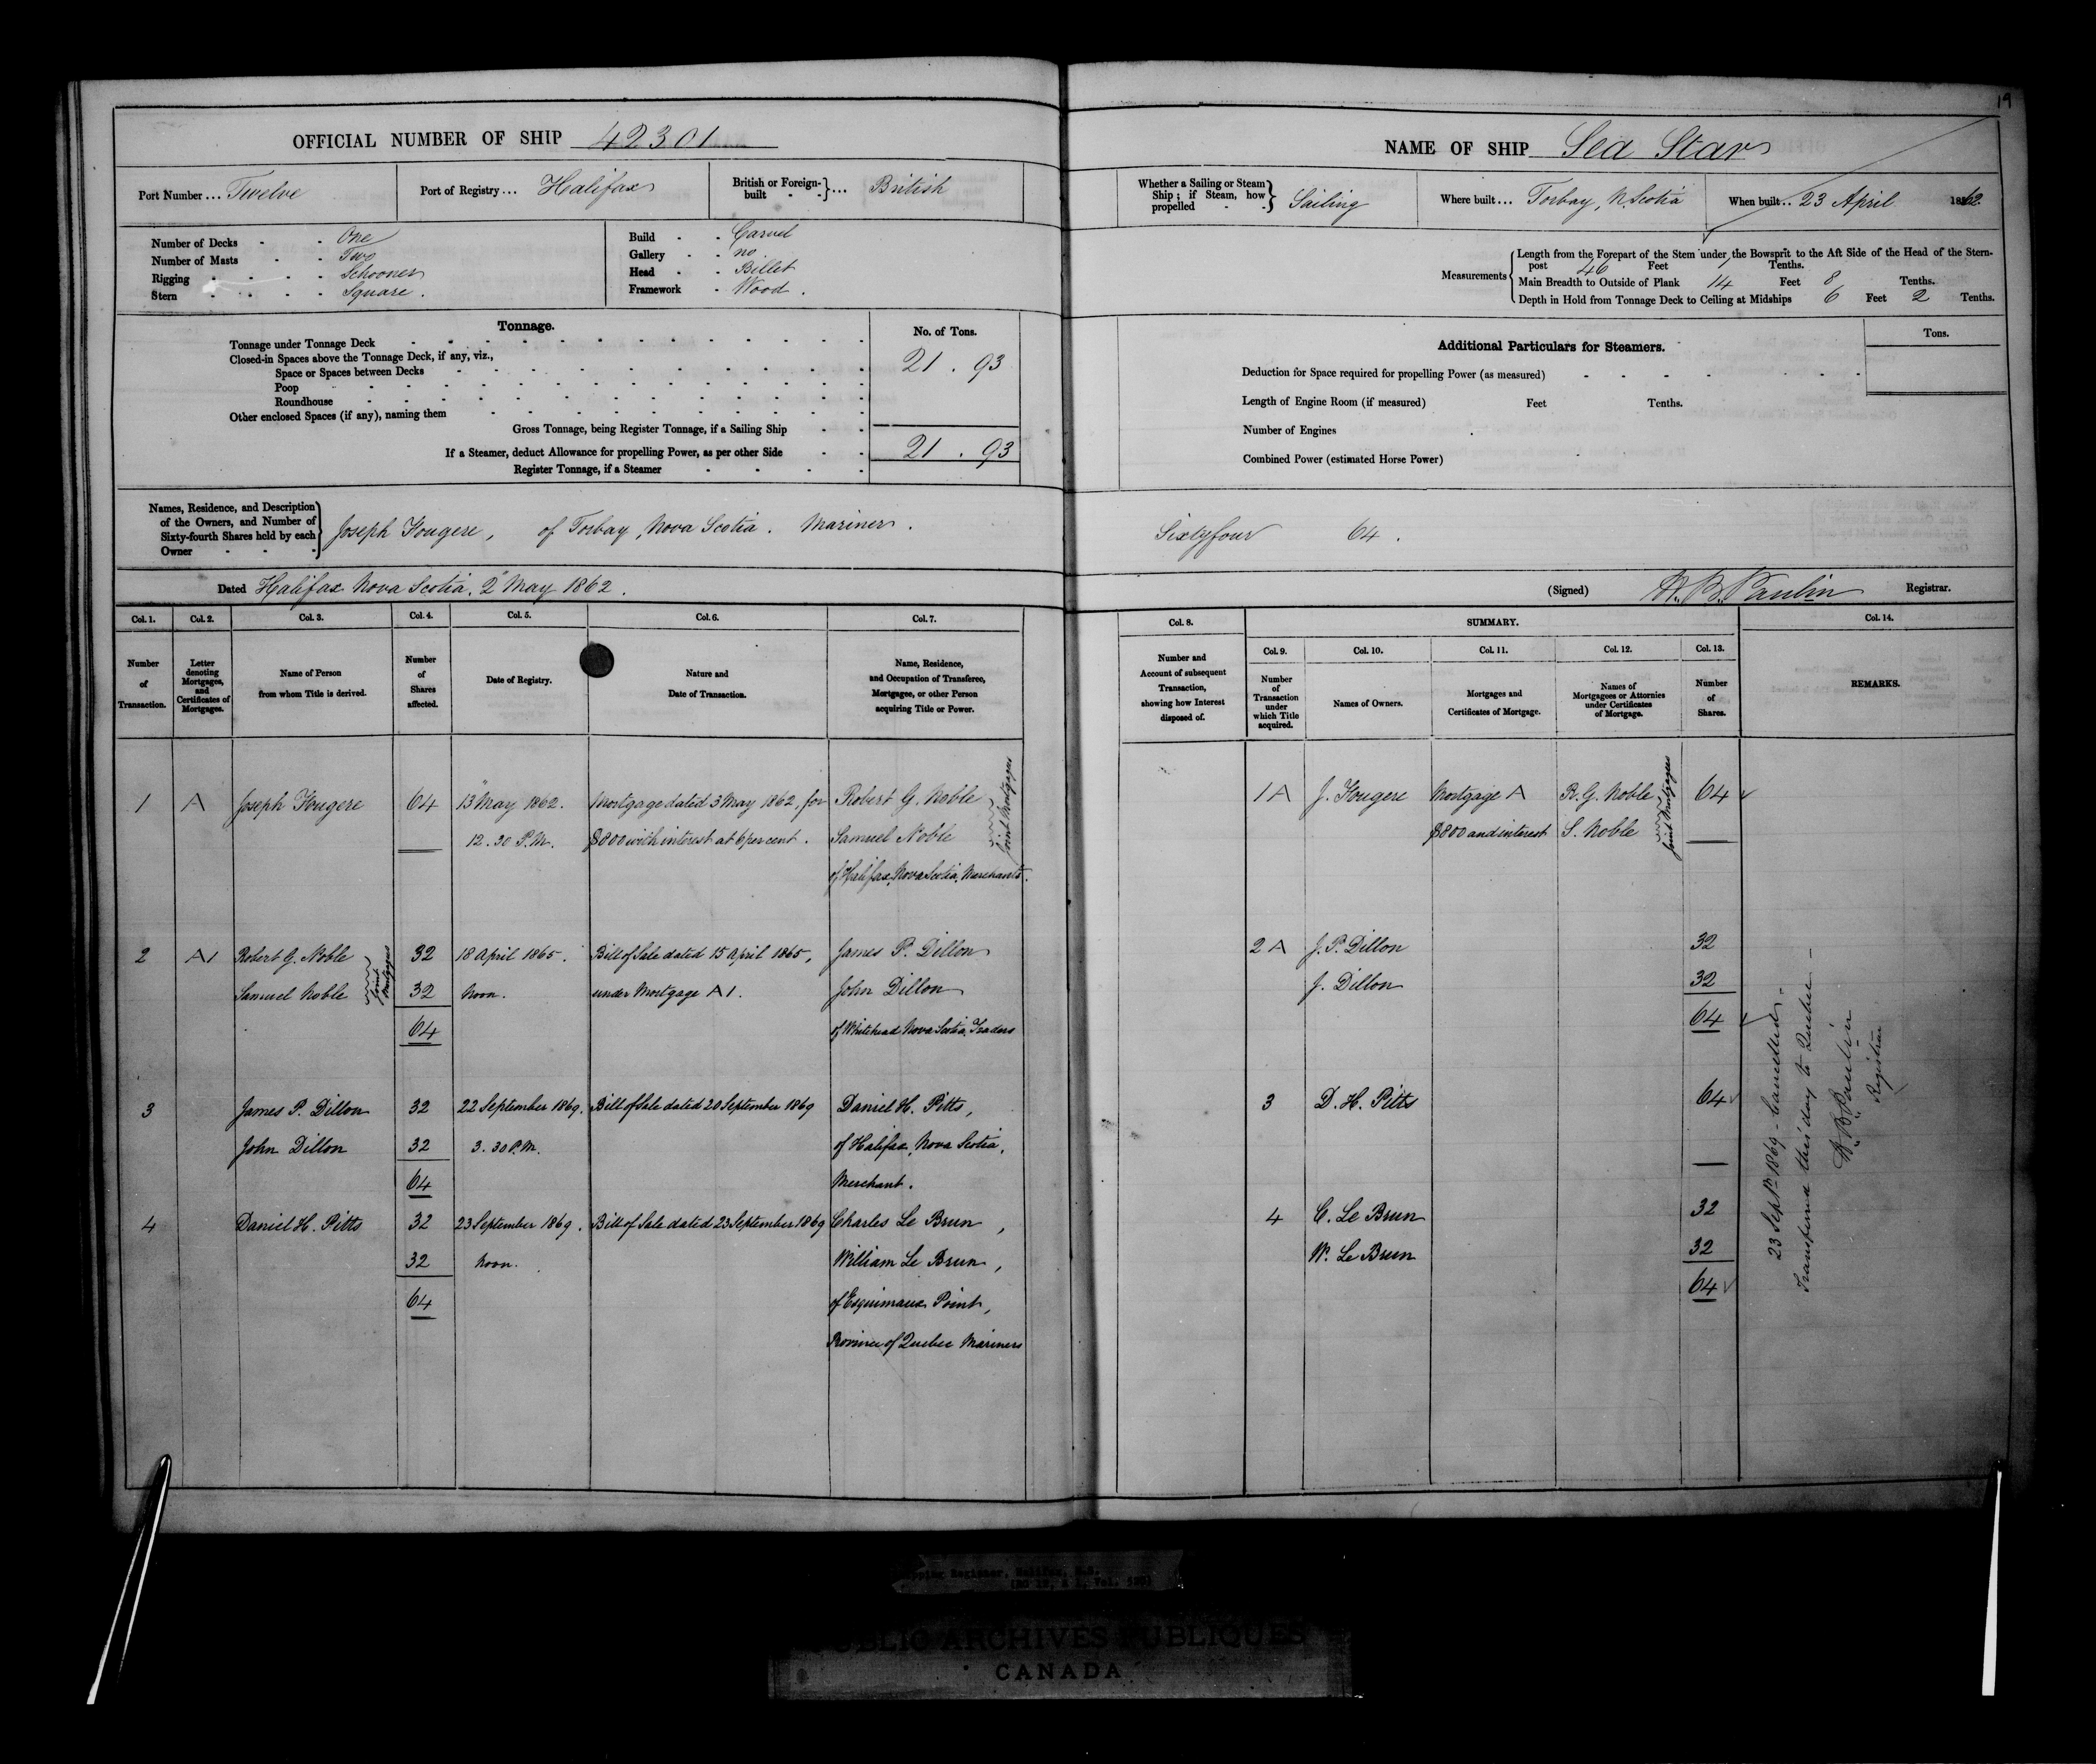 19
OFFICIAL NUMBER OF SHIP 42301
Port Number ... Twelve
Port of Registry ... Halifax
British or Foreign-built } ... British
Number of Decks - - One
Number of Masts - - Two
Rigging - - - - Schooner
Stern - - - - Square.
Build - - Carvel
Gallery - - no
Head - - Billet
Framework - Wood.
Tonnage.
No. of Tons.
Tonnage under Tonnage Deck 21.93
Closed-in Spaces above the Tonnage Deck, if any, viz.,
Space or Spaces between Decks
Poop
Roundhouse
Other enclosed Spaces (if any), naming them
Gross Tonnage, being Register Tonnage, if a Sailing Ship 21.93
If a Steamer, deduct Allowance for propelling Power, as per other Side
Register Tonnage, if a Steamer
Names, Residence, and Description of the Owners, and Number of Sixty-fourth Shares held by each Owner } Joseph Fougere, of Torbay, Nova Scotia. Mariner.
Dated Halifax Nova Scotia, 2" May 1862.
Col. 1. Col. 2. Col. 3. Col. 4. Col. 5. Col. 6. Col. 7.
Number of Transaction.
Letter denoting Mortgages, and Certificates of Mortgages.
Name of Person from whom Title is derived.
Number of Shares affected.
Date of Registry.
Nature and Date of Transaction.
Name, Residence, and Occupation of Transferee, Mortgagee, or other Person acquiring Title or Power.
1 A Joseph Fougere 64 13" May 1862. Mortgage dated 3 May 1862, for Robert G. Noble
12.30 P.M. $800 with interest at 6 per cent. Samuel Noble
Joint Mortgagees
of Halifax, Nova Scotia, Merchants.
2 A1 Robert G. Noble 32 18 April 1865. Bill of Sale dated 15 April 1865, James P. Dillon
Samuel Noble Joint Mortgagees 32 Noon. under Mortgage A1. John Dillon
64 of Whitehead Nova Scotia, Traders
3 James P. Dillon 32 22 September 1869. Bill of Sale dated 20 September 1869 Daniel H. Pitts,
John Dillon 32 3.30 P.M. of Halifax, Nova Scotia,
64 Merchant.
4 Daniel H. Pitts 32 23 September 1869. Bill of Sale dated 23 September 1869 Charles Le Brun,
32 Noon. William Le Brun,
64 of Esquimaux Point,
Province of Quebec Mariners
NAME OF SHIP Sea Star
Whether a Sailing or Steam Ship; if Steam, how propelled - - } Sailing
Where built ... Torbay, N. Scotia
When built ... 23 April 1862.
Measurements { Length from the Forepart of the Stem under the Bowsprit to the Aft Side of the Head of the Stern-
post 46 Feet 1 Tenths.
Main Breadth to Outside of Plank 14 Feet 8 Tenths.
Depth in Hold from Tonnage Deck to Ceiling at Midships 6 Feet 2 Tenths.
Additional Particulars for Steamers.
Tons.
Deduction for Space required for propelling Power (as measured)
Length of Engine Room (if measured) Feet Tenths.
Number of Engines
Combined Power (estimated Horse Power)
Sixtyfour 64.
(Signed) H. B. Paulin Registrar.
Col. 8. SUMMARY. Col. 14.
Col. 9. Col. 10. Col. 11. Col. 12. Col. 13.
Number and Account of subsequent Transaction, showing how Interest disposed of.
Number of Transaction under which Title acquired.
Names of Owners.
Mortgages and Certificates of Mortgage.
Names of Mortgagees or Attornies under Certificates of Mortgage.
Number of Shares.
REMARKS.
1 A J. Fougere Mortgage A R. G. Noble 64
$800 and interest S. Noble
Joint Mortgagees
2 A J. P. Dillon 32
J. Dillon 32
64
3 D. H. Pitts 64
4 C. Le Brun 32
W. Le Brun 32
64
23 Septr 1869 - Cancelled -
Transferred this day to Quebec -
H B Paulin
Registrar
Shipping Register, Halifax, N.S.
PUBLIC ARCHIVES PUBLIQUES
CANADA